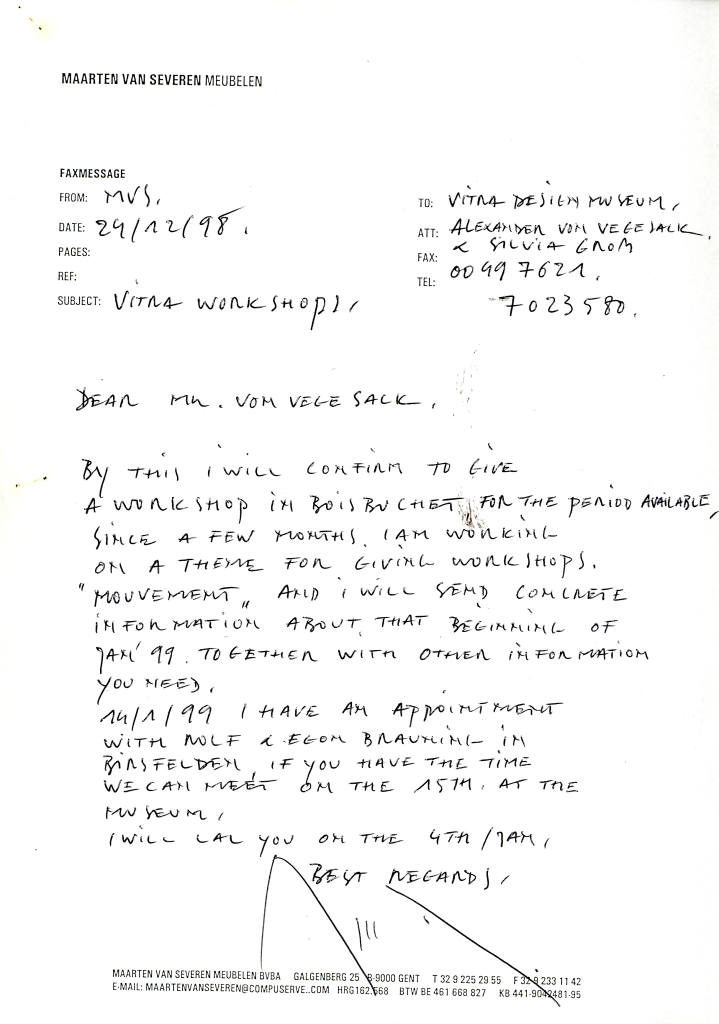 MAARTEN VAN SEVEREN MEUBELEN
FAXMESSAGE
FROM: MVS.
DATE: 24/12/98.
PAGES:
REF:
SUBJECT: VITRA WORKSHOPS,
TO: VITRA DESIGN MUSEUM,
ATT: ALEXANDER VON VEGESACK.
& SILVIA GROM
FAX: 00 49 7621.
TEL:
7023580.
DEAR MR. VON VEGESACK,
BY THIS I WILL CONFIRM TO GIVE
A WORKSHOP IN BOISBUCHET, FOR THE PERIOD AVAILABLE,
SINCE A FEW MONTHS, I AM WORKING
ON A THEME FOR GIVING WORKSHOPS.
"MOUVEMENT„ AND I WILL SEND CONCRETE
INFORMATION ABOUT THAT BEGINNING OF
JAN' 99. TOGETHER WITH OTHER INFORMATION
YOU NEED,
14/1/99 I HAVE AN APPOINTMENT
WITH ROLF & EGON BRAUNING IN
BIRSFELDEN, IF YOU HAVE THE TIME
WE CAN MEET ON THE 15TH. AT THE
MUSEUM,
I WILL CAL YOU ON THE 4TH/JAN,
BEST REGARDS,
MAARTEN VAN SEVEREN MEUBELEN BVBA GALGENBERG 25 B-9000 GENT T 32 9 225 29 55 F 32 9 233 11 42
E-MAIL: MAARTENVANSEVEREN@COMPUSERVE..COM HRG162.568 BTW BE 461 668 827 KB 441-9042481-95